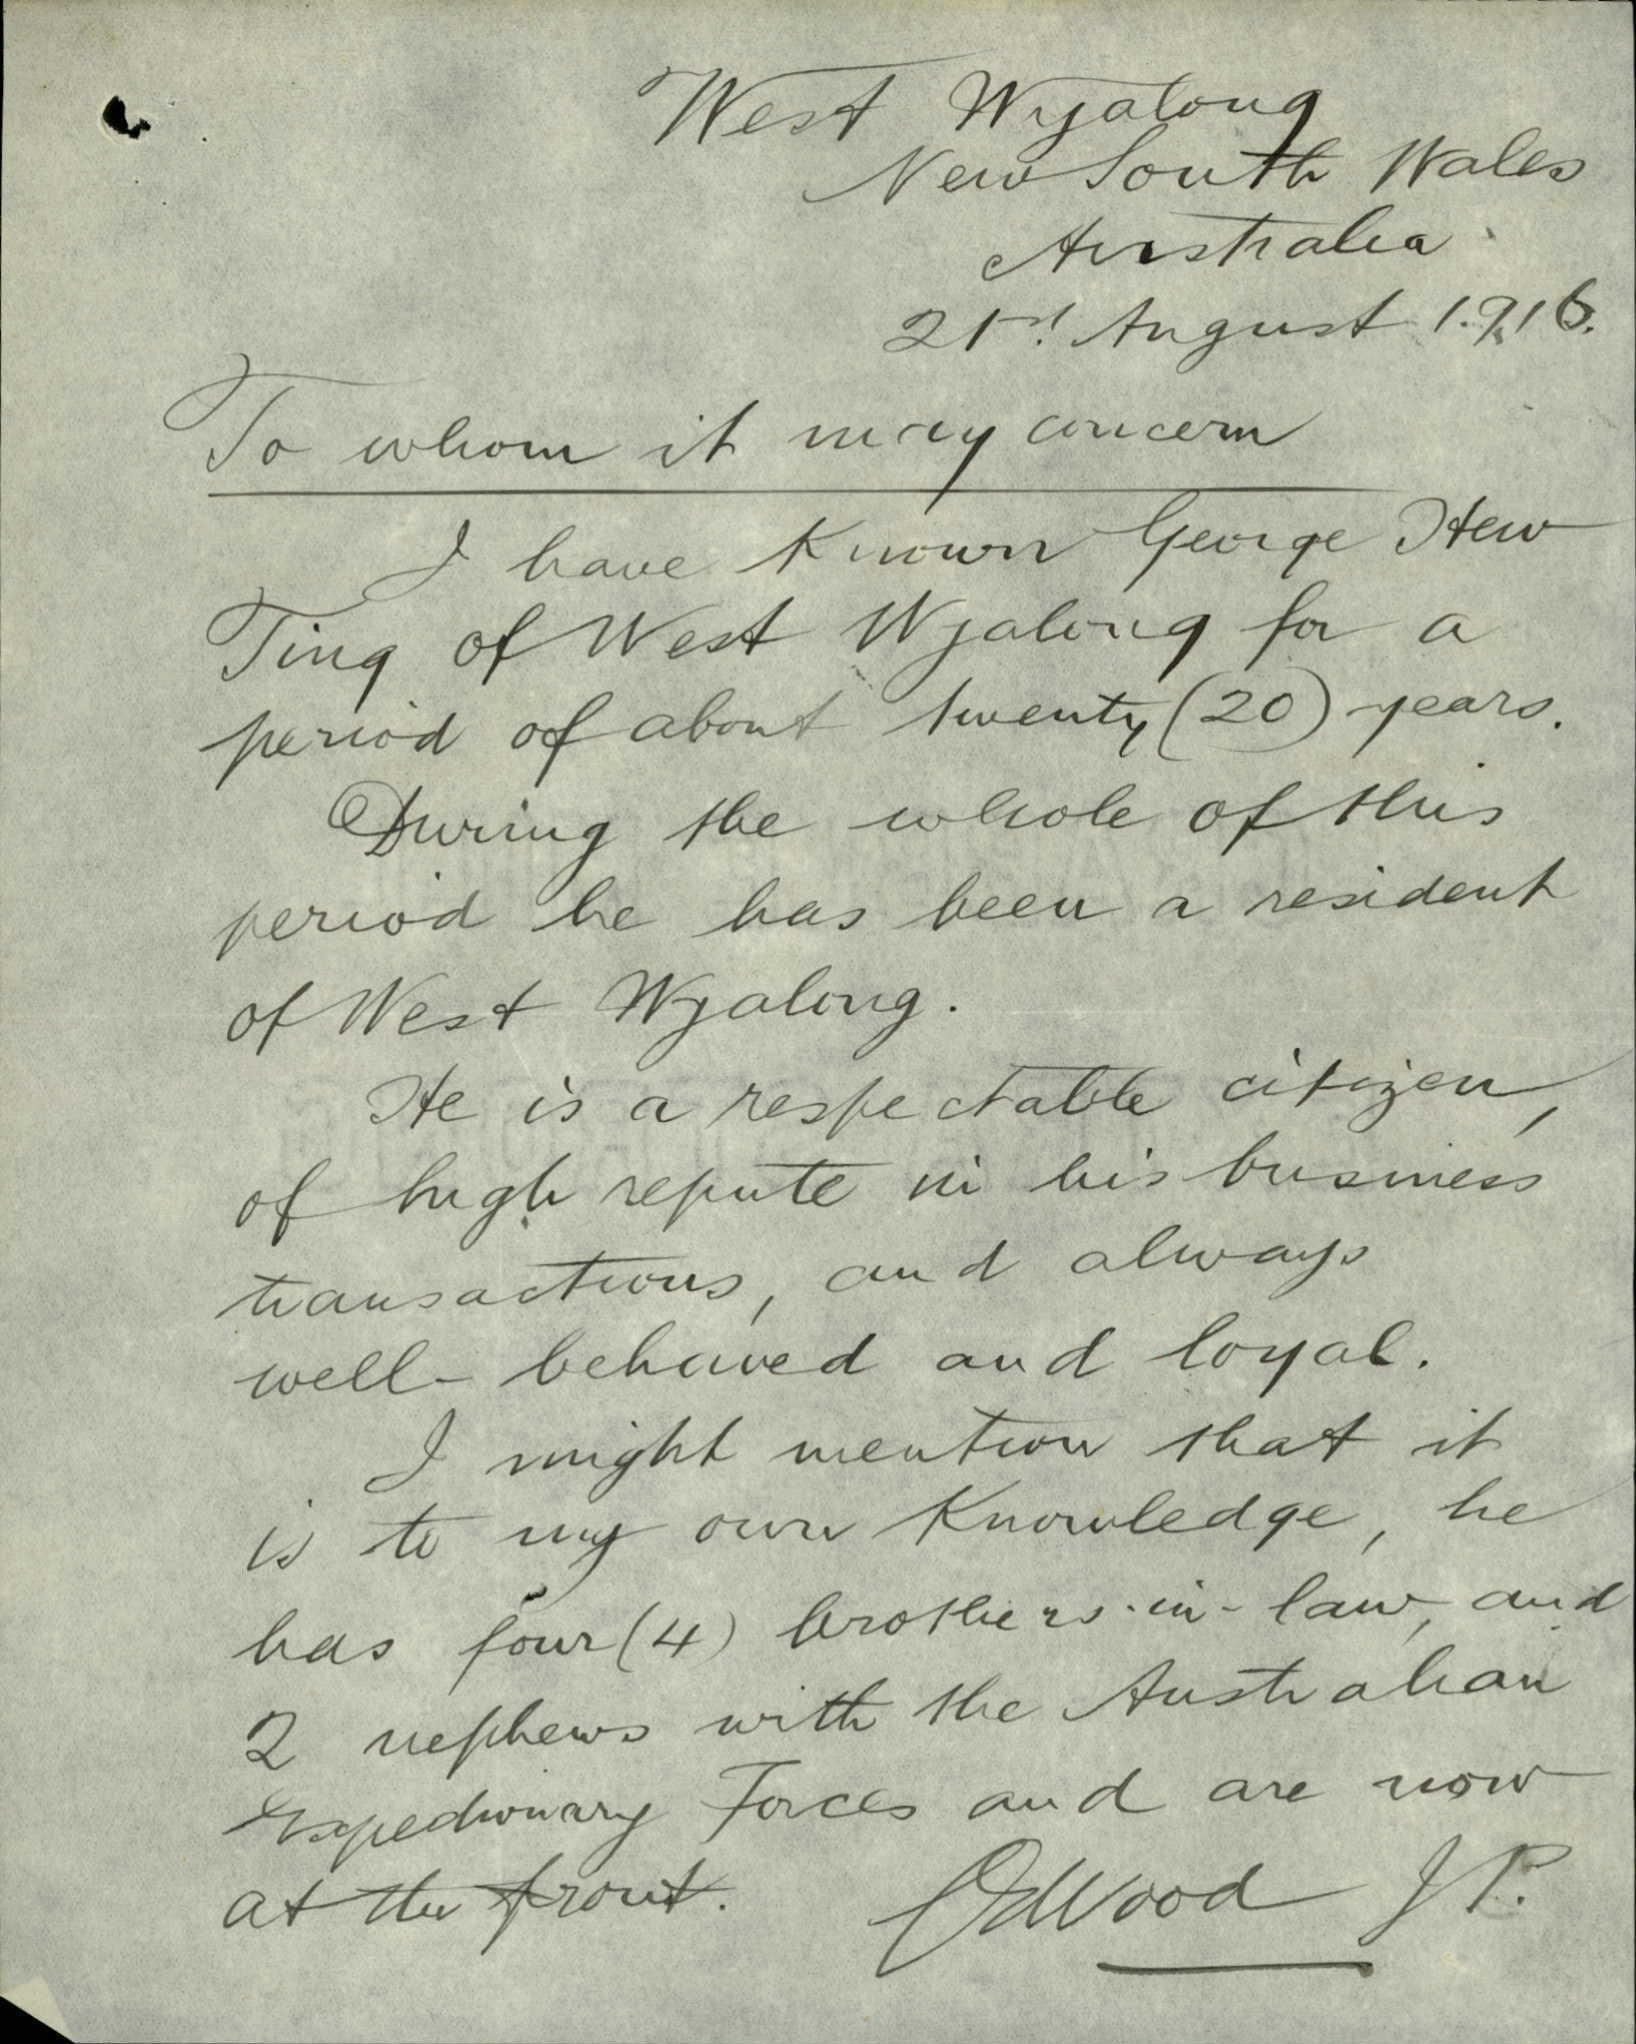 West Wyalong
New South Wales
Australia
21st August 1916.
To whom it may concern
I have known George Hew
Ting of West Wyalong for a
period of about twenty (20) years.
During the whole of this
period he has been a resident
of West Wyalong.
He is a respectable citizen,
of high repute in his business
transactions, and always
well-behaved and loyal.
I might mention that it
is to my own knowledge, he
has four (4) brothers-in-law, and
2 nephews with the Australian
Expedionary Forces and are now
at the front.
Wood J P.